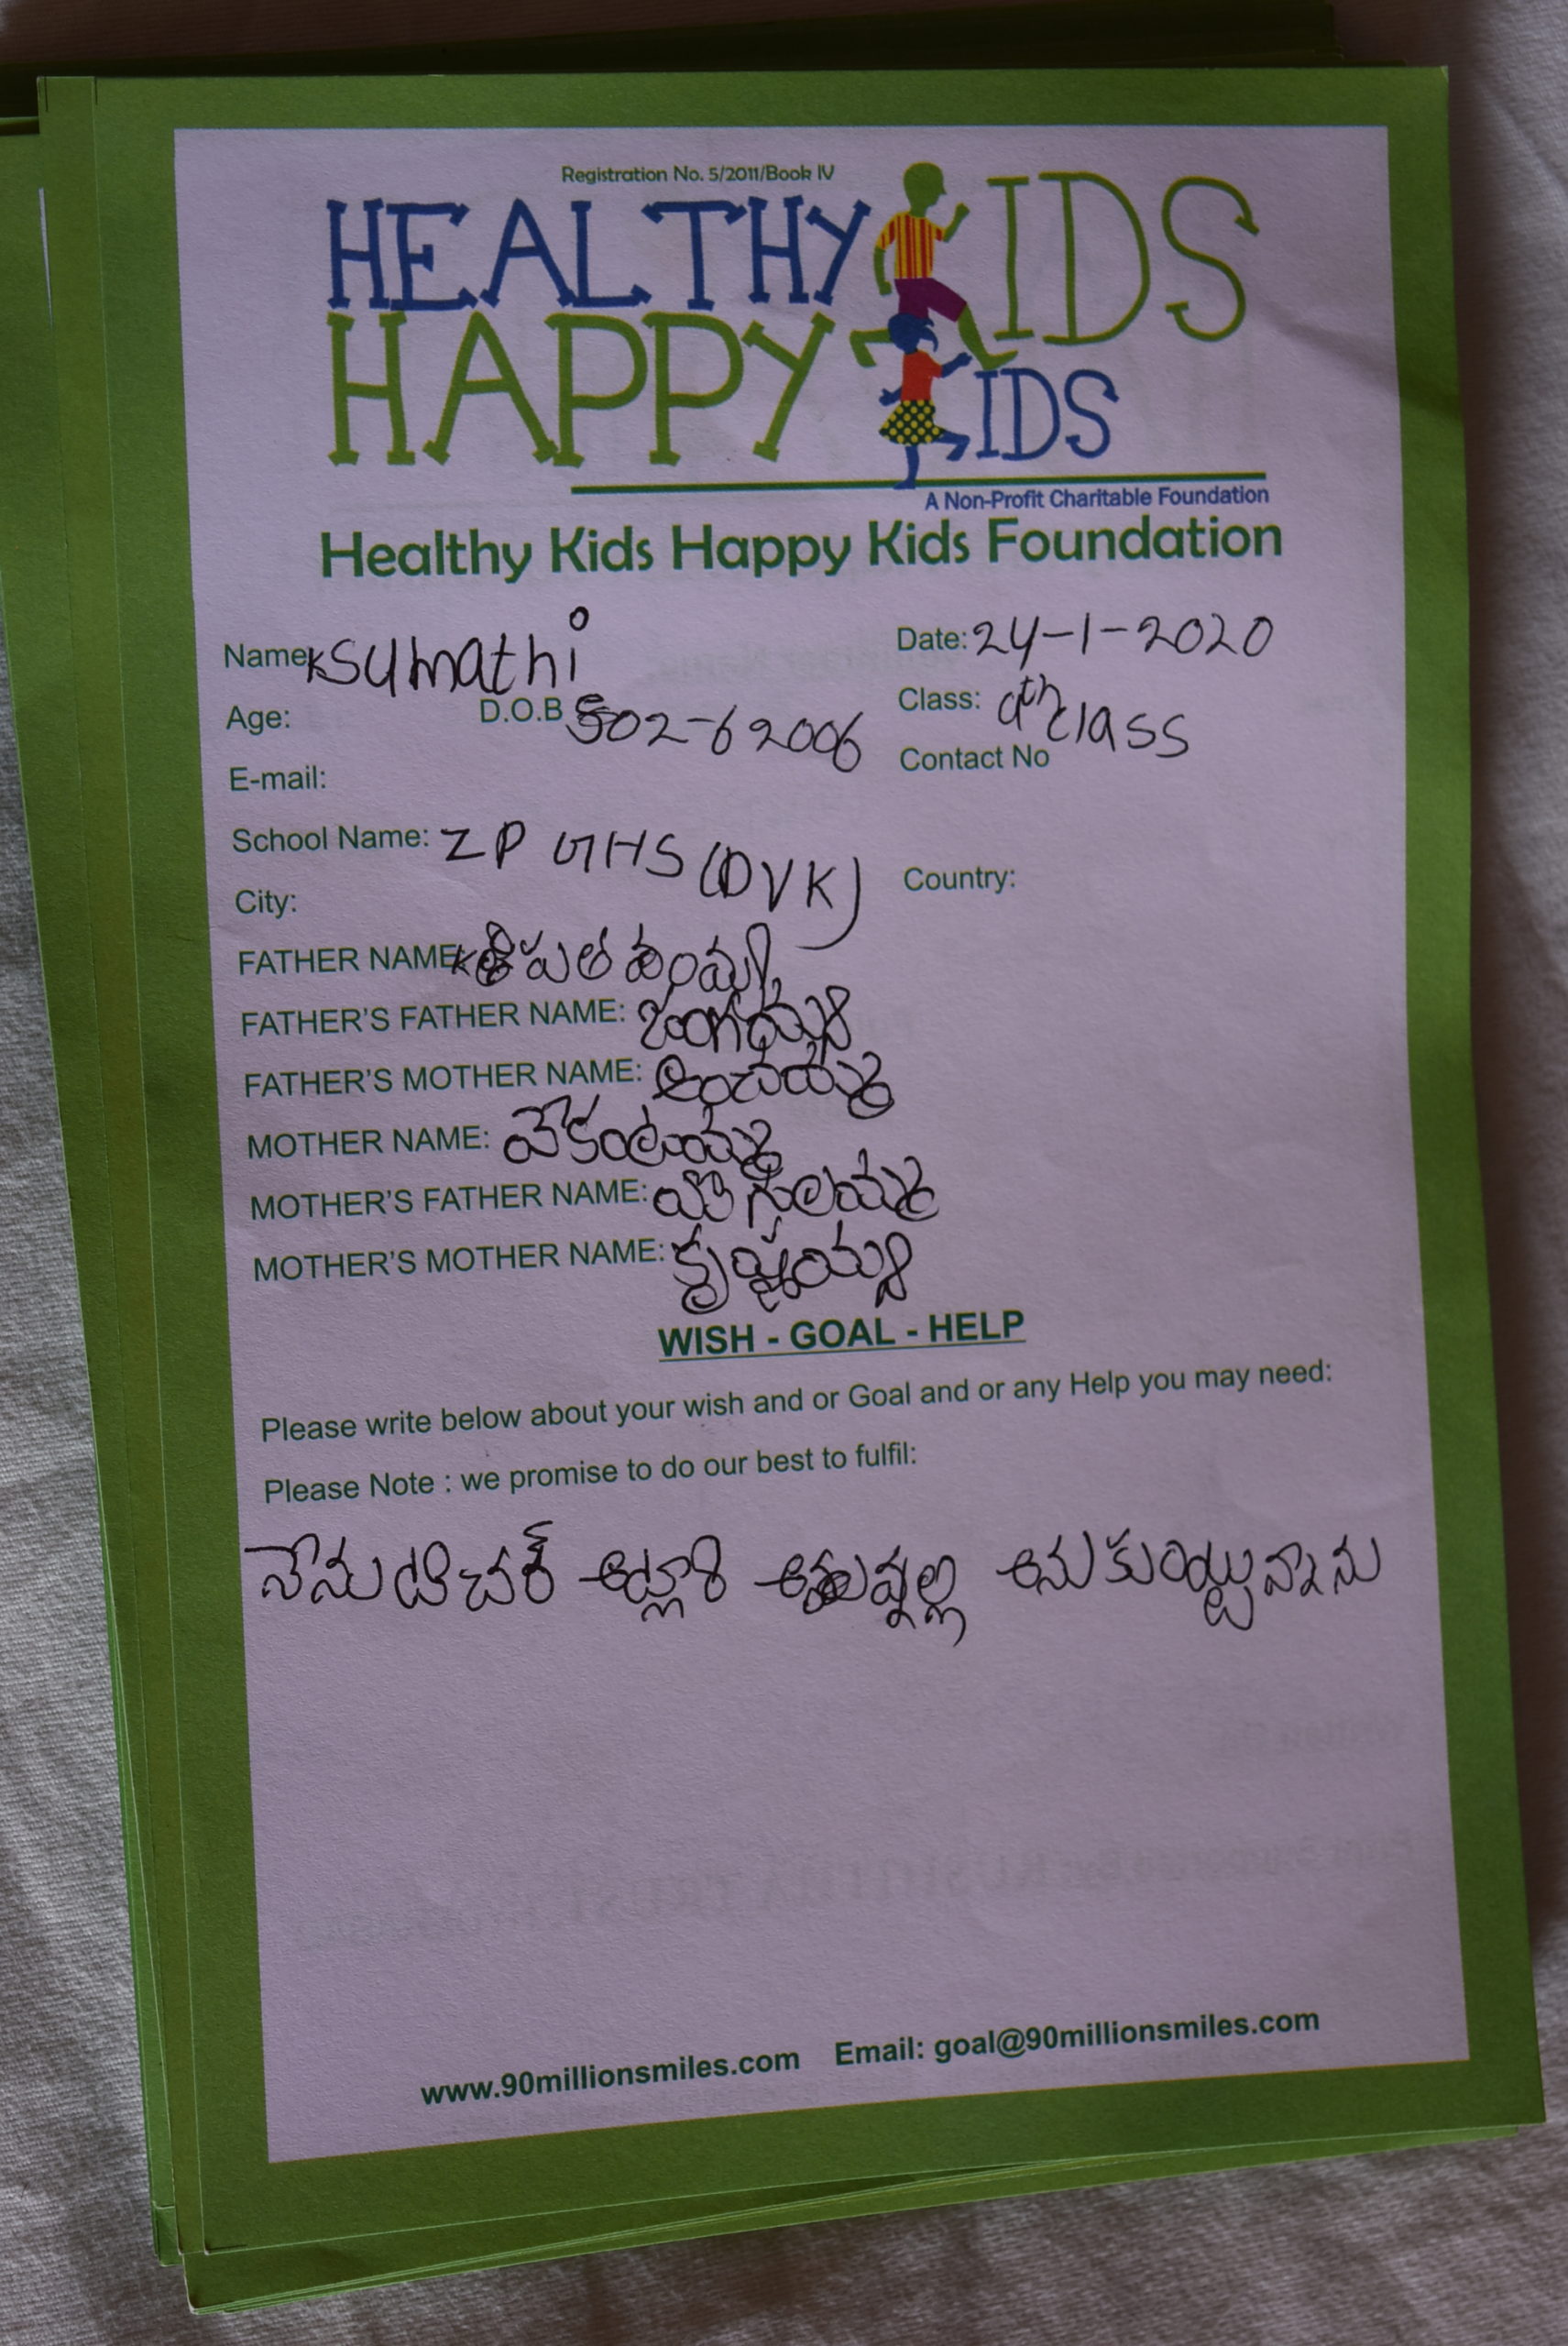 Registration No. 5/2011/Book IV
HEALTHY KIDS
HAPPY KIDS
A Non-Profit Charitable Foundation
Healthy Kids Happy Kids Foundation
Name: K Sumathi Date: 24-1-2020
Age: D.O.B 02-6 2006 Class: 9th class
E-mail: Contact No
School Name: ZP GHS (DVK)
City: Country:
FATHER NAME: K
FATHER'S FATHER NAME:
FATHER'S MOTHER NAME:
MOTHER NAME: వేకంటయమ్మ
MOTHER'S FATHER NAME:
MOTHER'S MOTHER NAME: కృష్ణయమ్మ
WISH - GOAL - HELP
Please write below about your wish and or Goal and or any Help you may need:
Please Note : we promise to do our best to fulfil:
నేను టిచర్ అనుకుంట్టున్నాను
www.90millionsmiles.com Email: goal@90millionsmiles.com